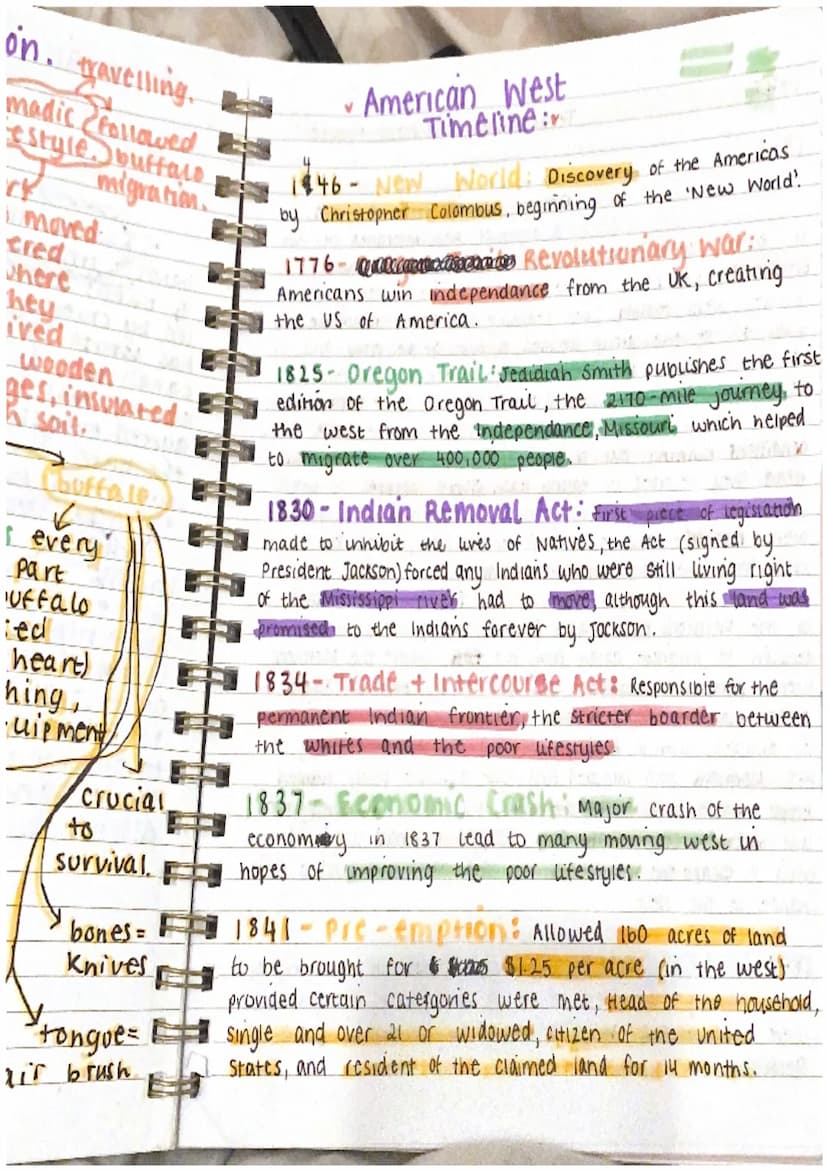 on.
travelling.
madic followed
estyle. buffalo
migration.
moved
ered
where
they
ived
wooden
ges, insulated
soil.
buffalo
every
part
uffalo
ed
heart)
hing,
uipment
crucial
to
survival.
bones=
knives
tongue=
air brush
American West
Timeline:
1446 - New World: Discovery of the Americas
by Christopher Colombus, beginning of the 'New World'.
1776 - Revolutionary War:
Americans win independance from the UK, creating
the US of America.
1825 - Oregon Trail: Jedidiah Smith publishes the first
edition of the Oregon Trail, the 2170-mile journey, to
the west from the Independance, Missouri which helped
to migrate over 400,000 people.
1830 - Indian Removal Act: First piece of legislation
made to inhibit the lives of Natives, the Act (signed by
President Jackson) forced any Indians who were still living right
of the Mississippi river had to move, although this land was
promised to the Indians forever by Jackson.
1834 - Trade + Intercourse Act: Responsible for the
permanent Indian frontier, the stricter boarder between
the whites and the poor lifestyles.
1837 - Economic Crash: Major crash of the
economy in 1837 lead to many moving west in
hopes of improving the poor lifestyles.
1841 - Pre-emption: Allowed 160 acres of land
to be brought for $1.25 per acre (in the west)
provided certain catergories were met, Head of the household,
single and over 21 or widowed, citizen of the united
States, and resident of the claimed land for 14 months.